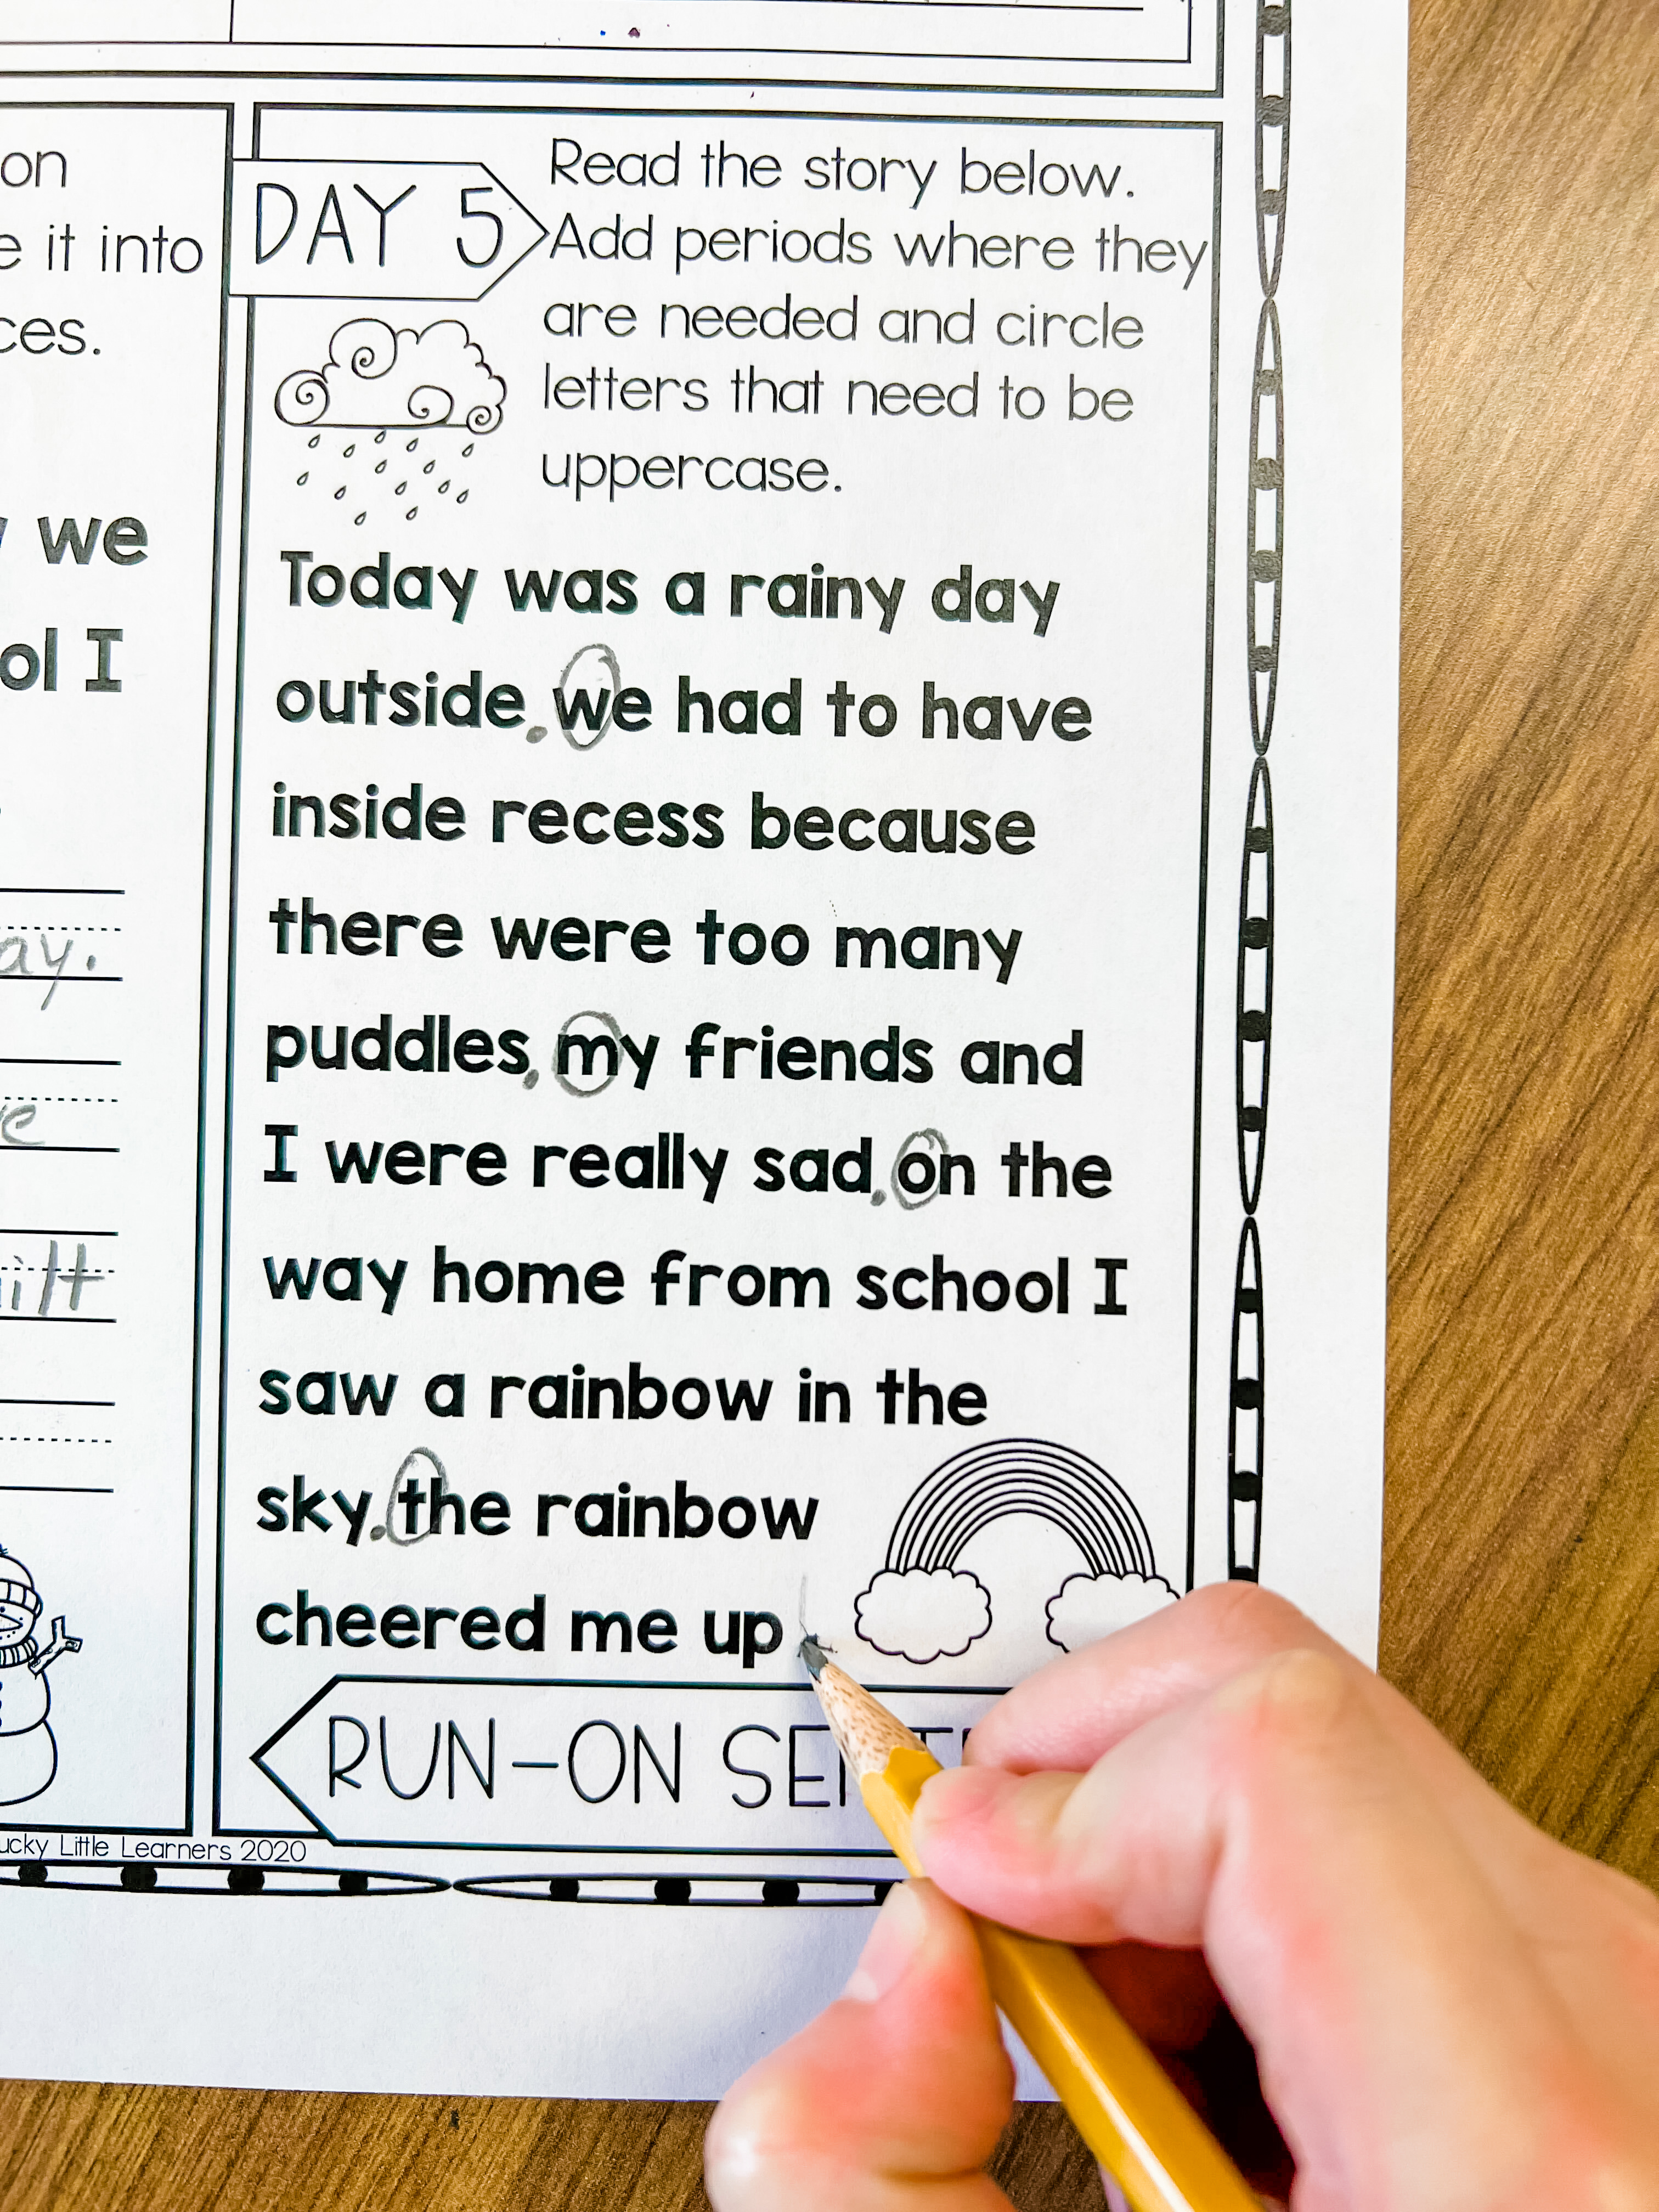 on
it into
we
I
ay.
DAY 5
Read the story below.
Add periods where they
are needed and circle
letters that need to be
uppercase.
Today was a rainy day
outside. we had to have
inside recess because
there were too many
puddles. my friends and
I were really sad. on the
way home from school I
saw a rainbow in the
sky. the rainbow
cheered me up
RUN-ON
Little Learners 2020